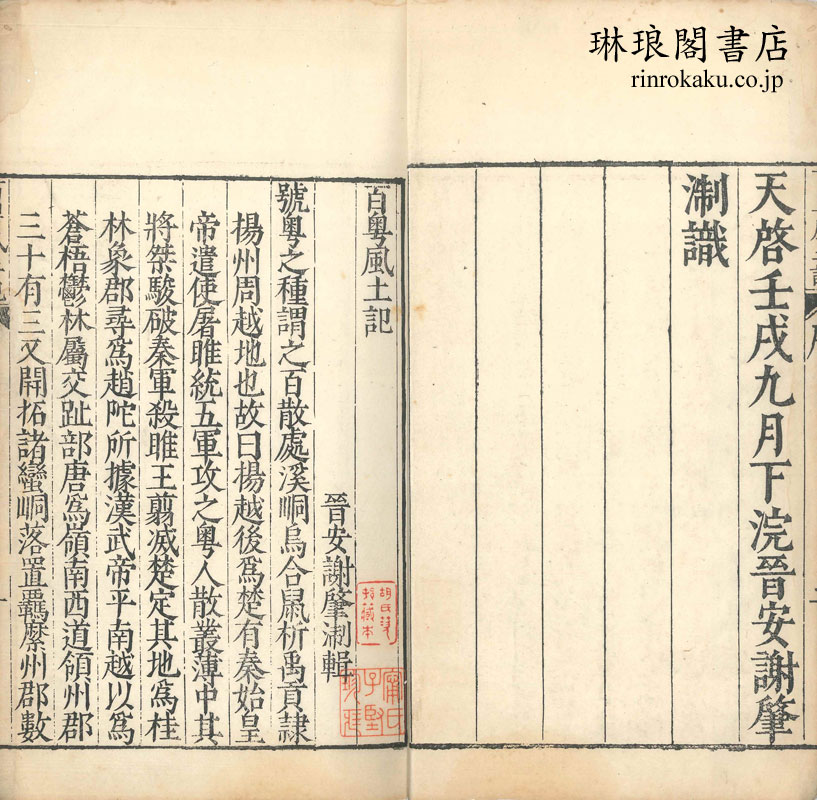 琳琅閣書店
rinrokaku.co.jp
天啓壬戌九月下浣晉安謝肇
淛識
百粵風土記
晉安謝肇淛輯
號粵之種謂之百散處溪峒烏合鼠析禹貢隷
揚州周越地也故曰揚越後爲楚有秦始皇
帝遣使屠睢統五軍攻之粵人散叢薄中其
將桀駿破秦軍殺睢王翦滅楚定其地爲桂
林象郡尋爲趙陀所據漢武帝平南越以爲
蒼梧鬱林屬交趾部唐爲嶺南西道領州郡
三十有三又開拓諸蠻峒落置羈縻州郡數